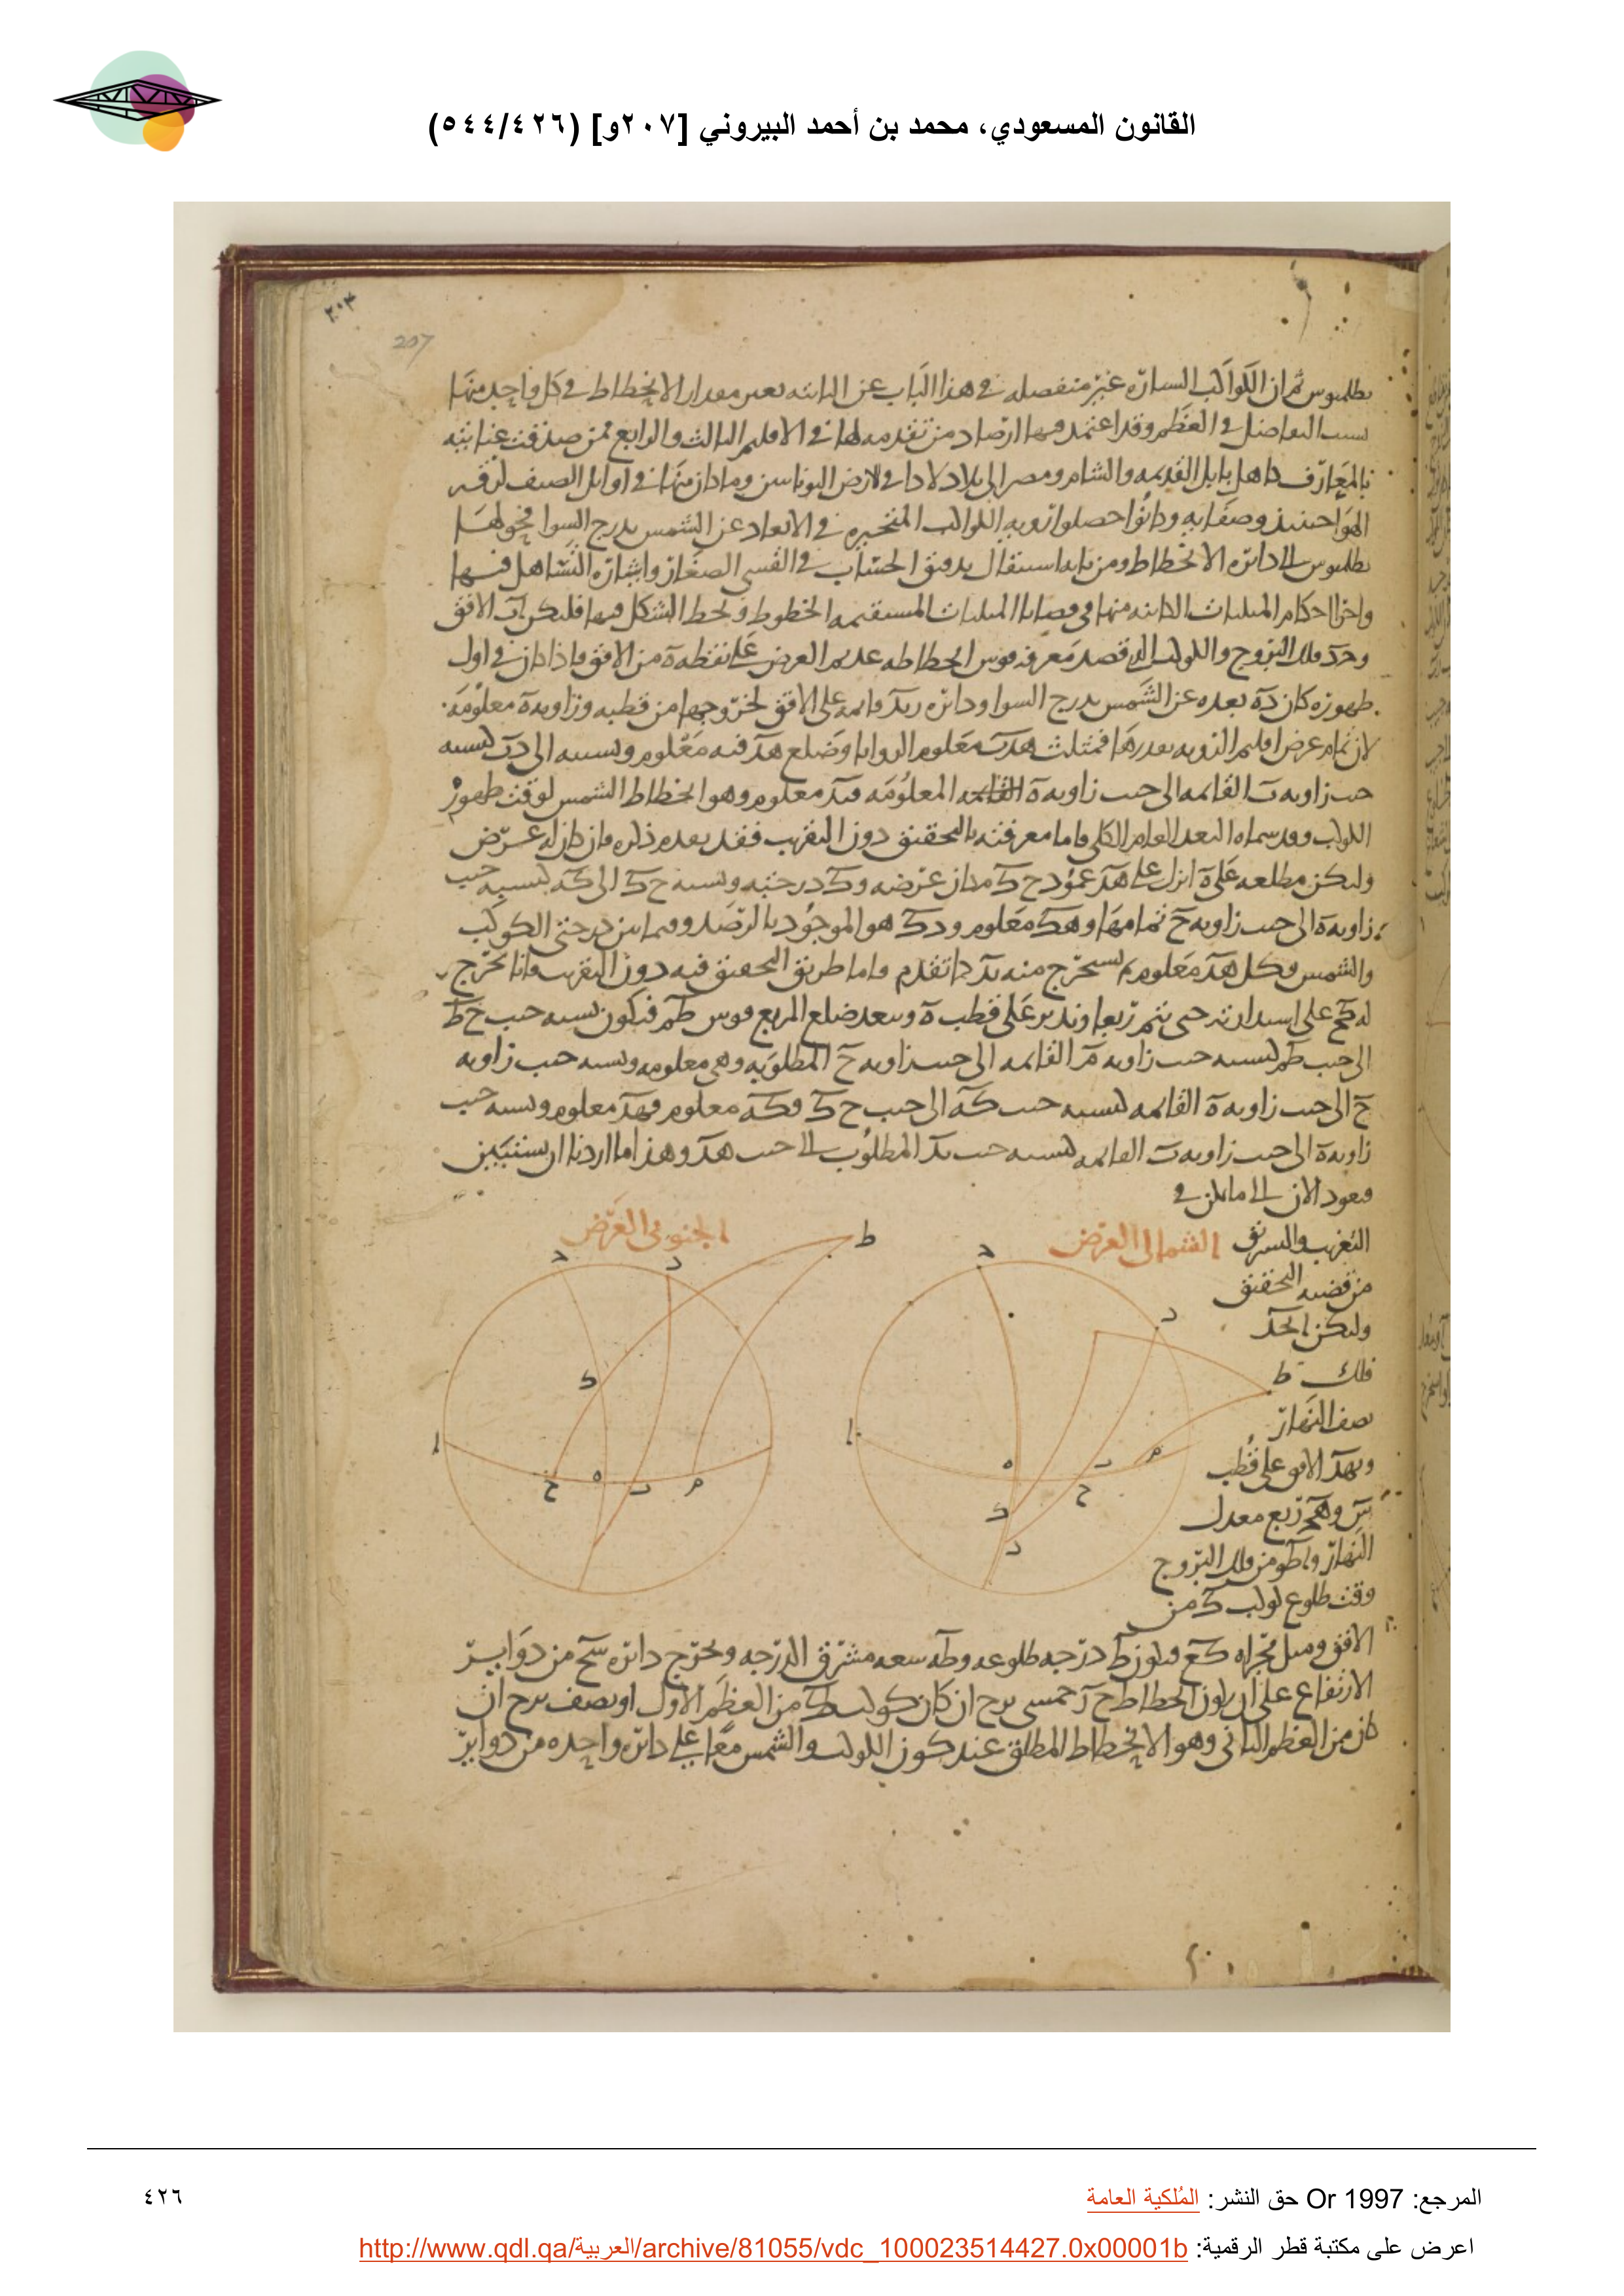 القانون المسعودي، محمد بن أحمد البيروني [٢٠٧و] (٥٤٤/٤٢٦)
٢٠٣
207
بطلميوس ثم ان الكواكب السيارة غير منفصله في هذا الباب عن الثابته بغير مقدار الانحطاط في كل واحد منها
بسبب التفاضل في العظم وقد اعتمد فيها ارصاد من تقدمه لها في الاقليم الثالث والرابع ممن صدقت عنايته
بالمعارف كاهل بابل القديمه والشام ومصر الى بلاد لارض اليونانيين وما كان منها في اوايل الصيف لرقه
الهوا حينيذ وصفايه وكانوا حصلوا رويه الكواكب المتحيره في الابعاد عن الشمس بدرج السوا فحولها
بطلميوس الى دايره الانحطاط ومن تدقيق الحساب في القسي الصغار وايثاره التساهل فيها
واخذ احكام المثلثات منها في قضايا المثلثات المستقيمه الخطوط الشكل فيها فليكن اب الافق
وحد فلك البروج والكوكب الذي قصد معرفه قوس انحطاطه عديم العرض على نقطه ه من الافق فاذا كان في اول
ظهوره كان ده بعده عن الشمس بدرج السوا ودايره ربد قايمه على الافق لخروجها من قطبه وزاويه ه معلومه
لان تمام عرض اقليم الرويه بقدرها فمثلث هدب معلوم الزوايا وضلع هد فيه معلوم ونسبته الى دب كنسبه
جيب زاويه ب القايمه الى جيب زاويه ه المعلومه فبد معلوم وهو انحطاط الشمس لوقت ظهور
الكوكب وقد سماه البعد العام الكلي فاما معرفته بالتحقيق دون التقريب فقد بعده ذلك فان كان له عرض
وليكن مطلعه على ه انزل على هد عمود ح ك مكان عرضه و ك درجته ونسبه ح ك الى كه كنسبه جيب
زاويه ه الى جيب زاويه ح تمامها و هك معلوم و دك هو الموجود بالرصد وفيما بين درجتي الكوكب
والشمس وكل هد معلوم يستخرج منه بد كما تقدم واما طريق التحقيق فيه دون التقريب فانا نخرج
له كح على استدارته حتى يتم ربعا وندير على قطب ه وببعد ضلع المربع قوس طم فيكون نسبه جيب ح ط
الى جيب طم كنسبه جيب زاويه م القايمه الى جيب زاويه ح المطلوبه وهي معلومه ونسبه جيب زاويه
ح الى جيب زاويه ه القايمه كنسبه جيب كه الى جيب ح ك وكه معلوم فهد معلوم ونسبه جيب
زاويه ه الى جيب زاويه ب القايمه كنسبه جيب بد المطلوب الى جيب هد وهذا ما اردنا ان نستبين
فنعود الان الى ما يمكن في
التغريب والتشريق الشمالي العرض الجنوبي العرض
من قضيه التحقيق
وليكن احد
فلك
نصف النهار
وبهد الافق على قطب
س وهم ربع معدل
النهار و اطو من فلك البروج
وقت طلوع كوكب ك من
ط د د ا ه ب م ح ك د
ط د د ك ا ح ه ب م
الافق وميل مجراه كع فيكون ط درجه طلوعه وطه سعه مشرق الدرجه ونخرج دايره سح من دواير
الارتفاع على ان يكون انحطاط ح ا خمسي برج ان كان كوكب ك من العظم الاول او نصف برج ان
كان من العظم الثاني وهو الانحطاط المطلق عند كون الكوكب والشمس معا على دايره واحده من دواير
المرجع: Or 1997 حق النشر: المُلكية العامة
٤٢٦
اعرض على مكتبة قطر الرقمية: http://www.qdl.qa/العربية/archive/81055/vdc_100023514427.0x00001b